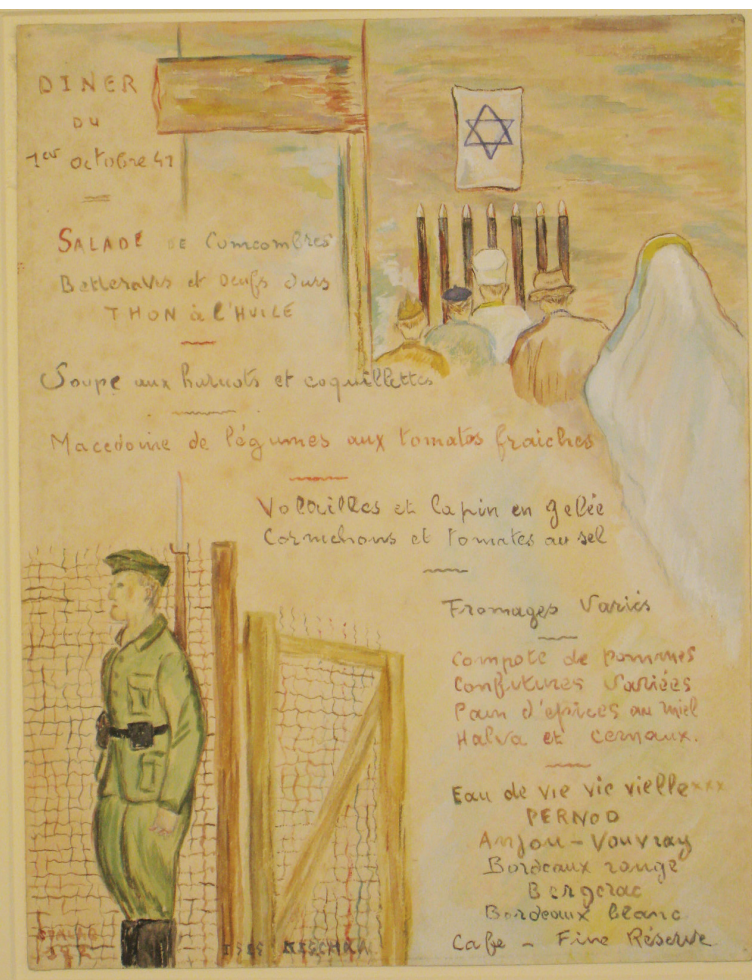 DINER
DU
1er octobre 41
SALADE DE Concombres
Betteraves et oeufs durs
THON à l'HUILE
Soupe aux haricots et coquillettes
Macedoine de légumes aux tomates fraiches
Volailles et lapin en gelée
Cornichons et tomates au sel
Fromages Variés
Compote de pommes
Confitures Variées
Pain d'épices au miel
Halva et cernaux.
Eau de vie vieille xxx
PERNOD
Anjou - Vouvray
Bordeaux rouge
Bergerac
Bordeaux blanc
Cafe - Fine Réserve
STALAG